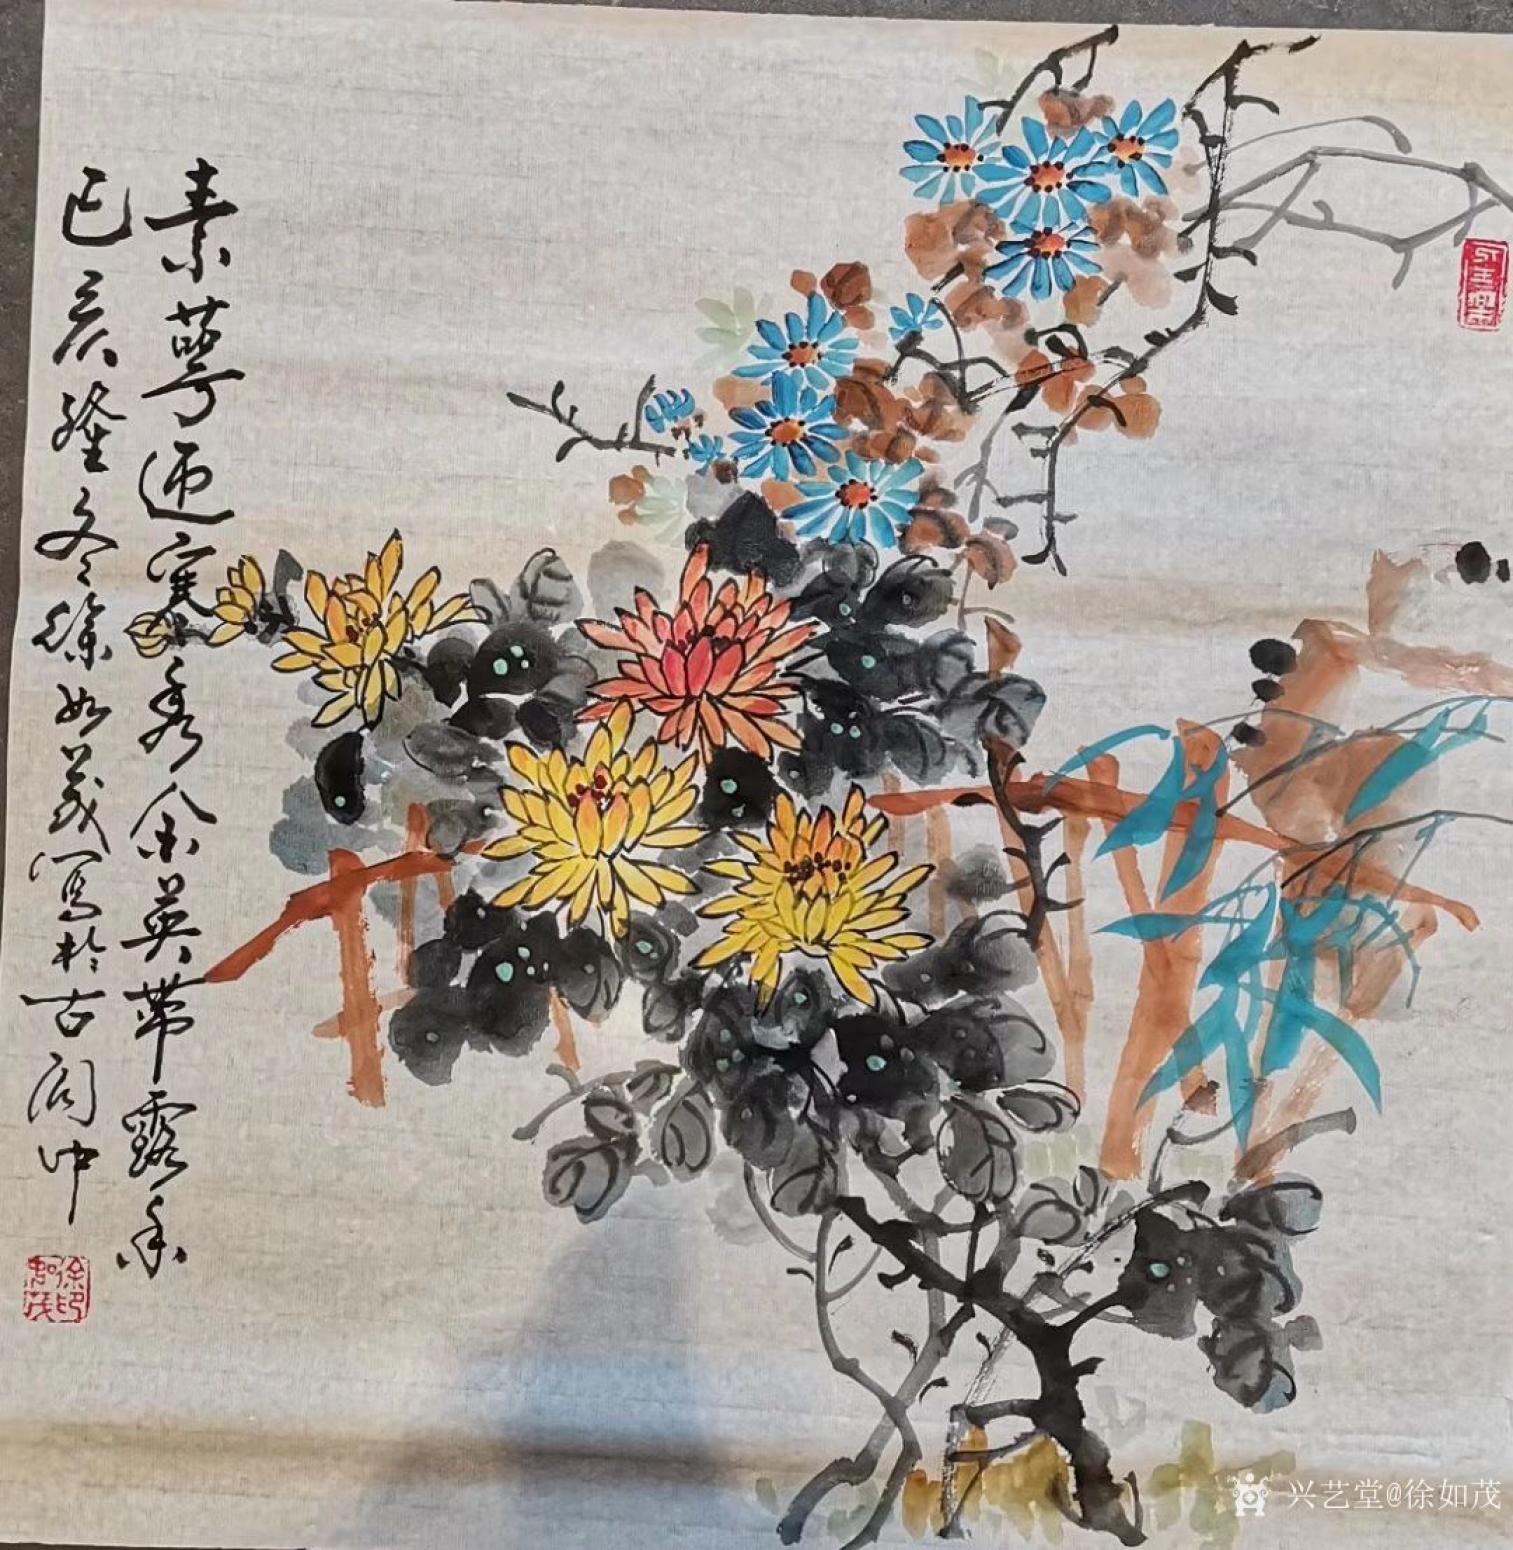 素萼迎寒秀金英带露香
己亥隆冬徐如茂写於古阆中
徐印如茂
兴艺堂@徐如茂